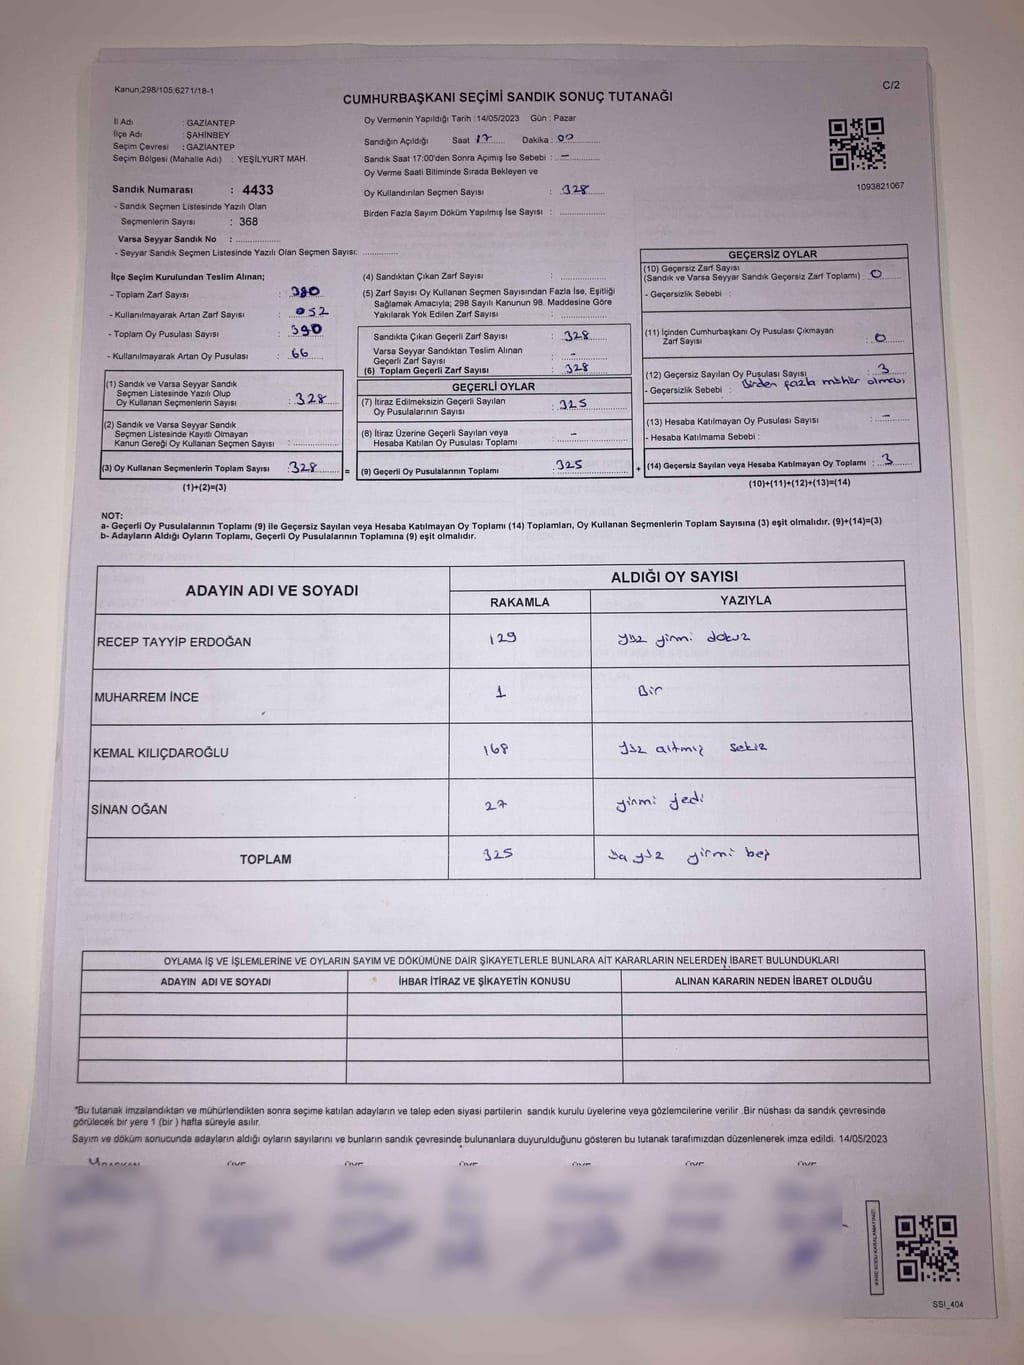 Kanun;298/105;6271/18-1
C/2
CUMHURBAŞKANI SEÇİMİ SANDIK SONUÇ TUTANAĞI
İl Adı : GAZİANTEP
İlçe Adı : ŞAHİNBEY
Seçim Çevresi : GAZİANTEP
Seçim Bölgesi (Mahalle Adı) : YEŞİLYURT MAH.
Sandık Numarası : 4433
- Sandık Seçmen Listesinde Yazılı Olan
Seçmenlerin Sayısı : 368
Varsa Seyyar Sandık No : ..............
- Seyyar Sandık Seçmen Listesinde Yazılı Olan Seçmen Sayısı: ..............
Oy Vermenin Yapıldığı Tarih : 14/05/2023 Gün : Pazar
Sandığın Açıldığı Saat 17 Dakika : 00
Sandık Saat 17:00'den Sonra Açımış İse Sebebi : -
Oy Verme Saati Bitiminde Sırada Bekleyen ve
Oy Kullandırılan Seçmen Sayısı : 328
Birden Fazla Sayım Döküm Yapılmış İse Sayısı : ..............
1093821067
İlçe Seçim Kurulundan Teslim Alınan;
- Toplam Zarf Sayısı : 380
- Kullanılmayarak Artan Zarf Sayısı : 052
- Toplam Oy Pusulası Sayısı : 390
- Kullanılmayarak Artan Oy Pusulası : 66
(1) Sandık ve Varsa Seyyar Sandık
Seçmen Listesinde Yazılı Olup
Oy Kullanan Seçmenlerin Sayısı : 328
(2) Sandık ve Varsa Seyyar Sandık
Seçmen Listesinde Kayıtlı Olmayan
Kanun Gereği Oy Kullanan Seçmen Sayısı : ..............
(3) Oy Kullanan Seçmenlerin Toplam Sayısı : 328
(1)+(2)=(3)
(4) Sandıktan Çıkan Zarf Sayısı : ..............
(5) Zarf Sayısı Oy Kullanan Seçmen Sayısından Fazla İse, Eşitliği
Sağlamak Amacıyla; 298 Sayılı Kanunun 98. Maddesine Göre
Yakılarak Yok Edilen Zarf Sayısı : ..............
Sandıkta Çıkan Geçerli Zarf Sayısı : 328
Varsa Seyyar Sandıktan Teslim Alınan
Geçerli Zarf Sayısı : -
(6) Toplam Geçerli Zarf Sayısı : 328
GEÇERLİ OYLAR
(7) İtiraz Edilmeksizin Geçerli Sayılan
Oy Pusulalarının Sayısı : 325
(8) İtiraz Üzerine Geçerli Sayılan veya
Hesaba Katılan Oy Pusulası Toplamı : -
= (9) Geçerli Oy Pusulalarının Toplamı : 325
GEÇERSİZ OYLAR
(10) Geçersiz Zarf Sayısı
(Sandık ve Varsa Seyyar Sandık Geçersiz Zarf Toplamı) : 0
- Geçersizlik Sebebi :
(11) İçinden Cumhurbaşkanı Oy Pusulası Çıkmayan
Zarf Sayısı : 0
(12) Geçersiz Sayılan Oy Pusulası Sayısı : 3
- Geçersizlik Sebebi : Birden fazla mühür olması
(13) Hesaba Katılmayan Oy Pusulası Sayısı : -
- Hesaba Katılmama Sebebi :
+ (14) Geçersiz Sayılan veya Hesaba Katılmayan Oy Toplamı : 3
(10)+(11)+(12)+(13)=(14)
NOT:
a- Geçerli Oy Pusulalarının Toplamı (9) ile Geçersiz Sayılan veya Hesaba Katılmayan Oy Toplamı (14) Toplamları, Oy Kullanan Seçmenlerin Toplam Sayısına (3) eşit olmalıdır. (9)+(14)=(3)
b- Adayların Aldığı Oyların Toplamı, Geçerli Oy Pusulalarının Toplamına (9) eşit olmalıdır.
ADAYIN ADI VE SOYADI ALDIĞI OY SAYISI
RAKAMLA YAZIYLA
RECEP TAYYİP ERDOĞAN 129 yüz yirmi dokuz
MUHARREM İNCE 1 Bir
KEMAL KILIÇDAROĞLU 168 yüz altmış sekiz
SİNAN OĞAN 27 yirmi yedi
TOPLAM 325 üç yüz yirmi beş
OYLAMA İŞ VE İŞLEMLERİNE VE OYLARIN SAYIM VE DÖKÜMÜNE DAİR ŞİKAYETLERLE BUNLARA AİT KARARLARIN NELERDEN İBARET BULUNDUKLARI
ADAYIN ADI VE SOYADI İHBAR İTİRAZ VE ŞİKAYETİN KONUSU ALINAN KARARIN NEDEN İBARET OLDUĞU
*Bu tutanak imzalandıktan ve mühürlendikten sonra seçime katılan adayların ve talep eden siyasi partilerin sandık kurulu üyelerine veya gözlemcilerine verilir .Bir nüshası da sandık çevresinde
görülecek bir yere 1 (bir ) hafta süreyle asılır.
Sayım ve döküm sonucunda adayların aldığı oyların sayılarını ve bunların sandık çevresinde bulunanlara duyurulduğunu gösteren bu tutanak tarafımızdan düzenlenerek imza edildi. 14/05/2023
SSI_404